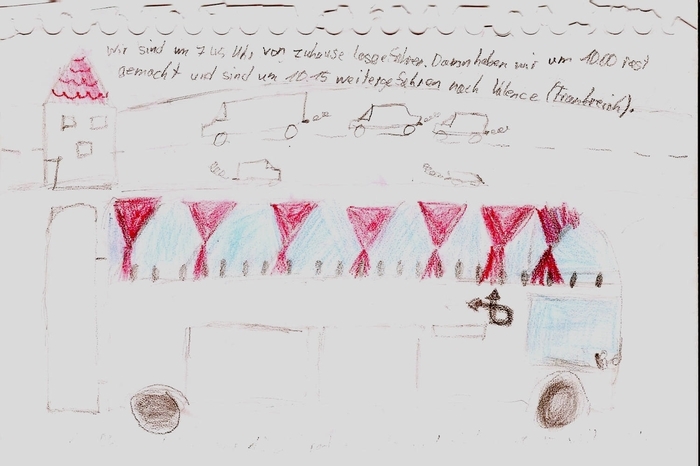 Wir sind um 7.45 Uhr von zuhause losgefahren. Dann haben wir um 10.00 rast
gemacht und sind um 10.15 weitergefahren nach Valence (Frankreich).